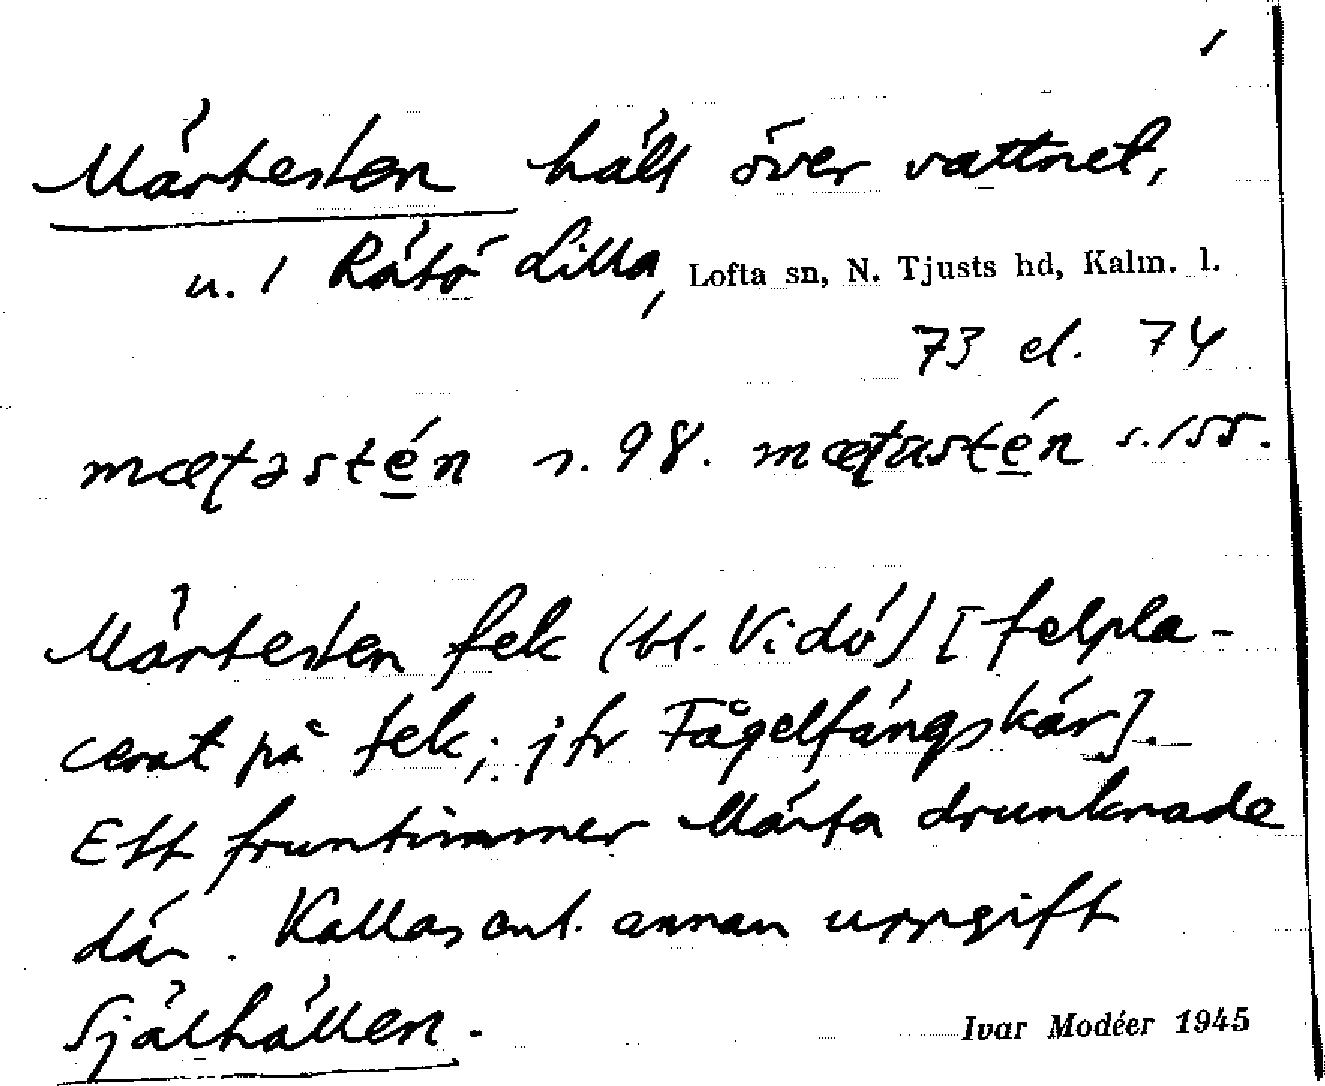 Märtesten häll över vattnet,
u. / Rätö Lilla, Lofta sn, N. Tjusts hd, Kalm. l.
73 el. 74
mæʈəstén s. 98. mæʈastén s. 155.
Märtesten fek (bl. Vidö) [felpla-
cerat på fek; jfr Fågelfängskär].
Ett fruntimmer Märta drunknade
där. Kallas enl. annan uppgift
Själhällen.
Ivar Modéer 1945